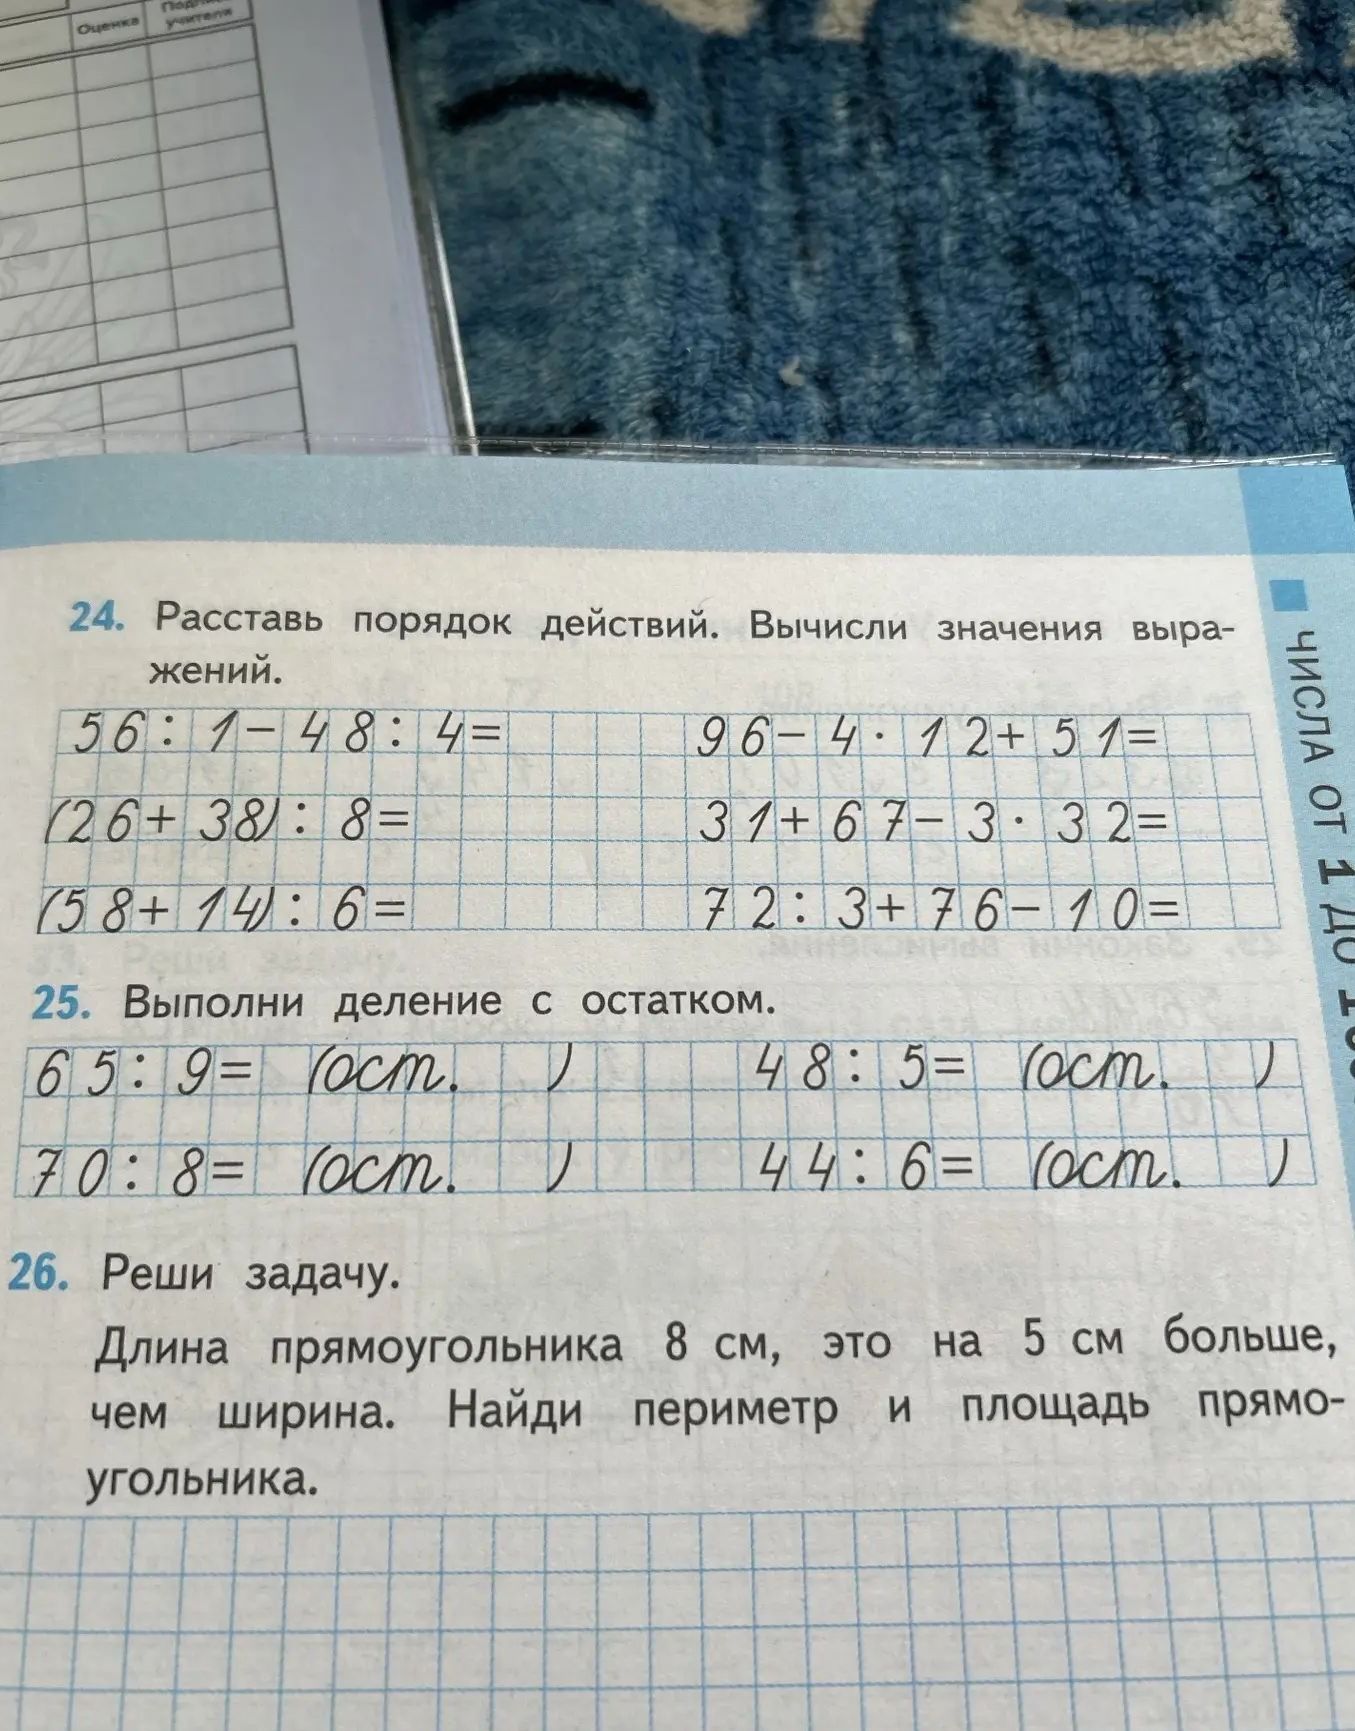 Оценка
учителя
24. Расставь порядок действий. Вычисли значения выра-
жений.
56: 1-48: 4= 96-4·12+51=
(26+38):8= 31+67-3·32=
(58+14):6= 72:3+76-10=
25. Выполни деление с остатком.
65:9= (ост. ) 48:5= (ост. )
70:8= (ост. ) 44:6= (ост. )
26. Реши задачу.
Длина прямоугольника 8 см, это на 5 см больше,
чем ширина. Найди периметр и площадь прямо-
угольника.
ЧИСЛА ОТ 1 ДО